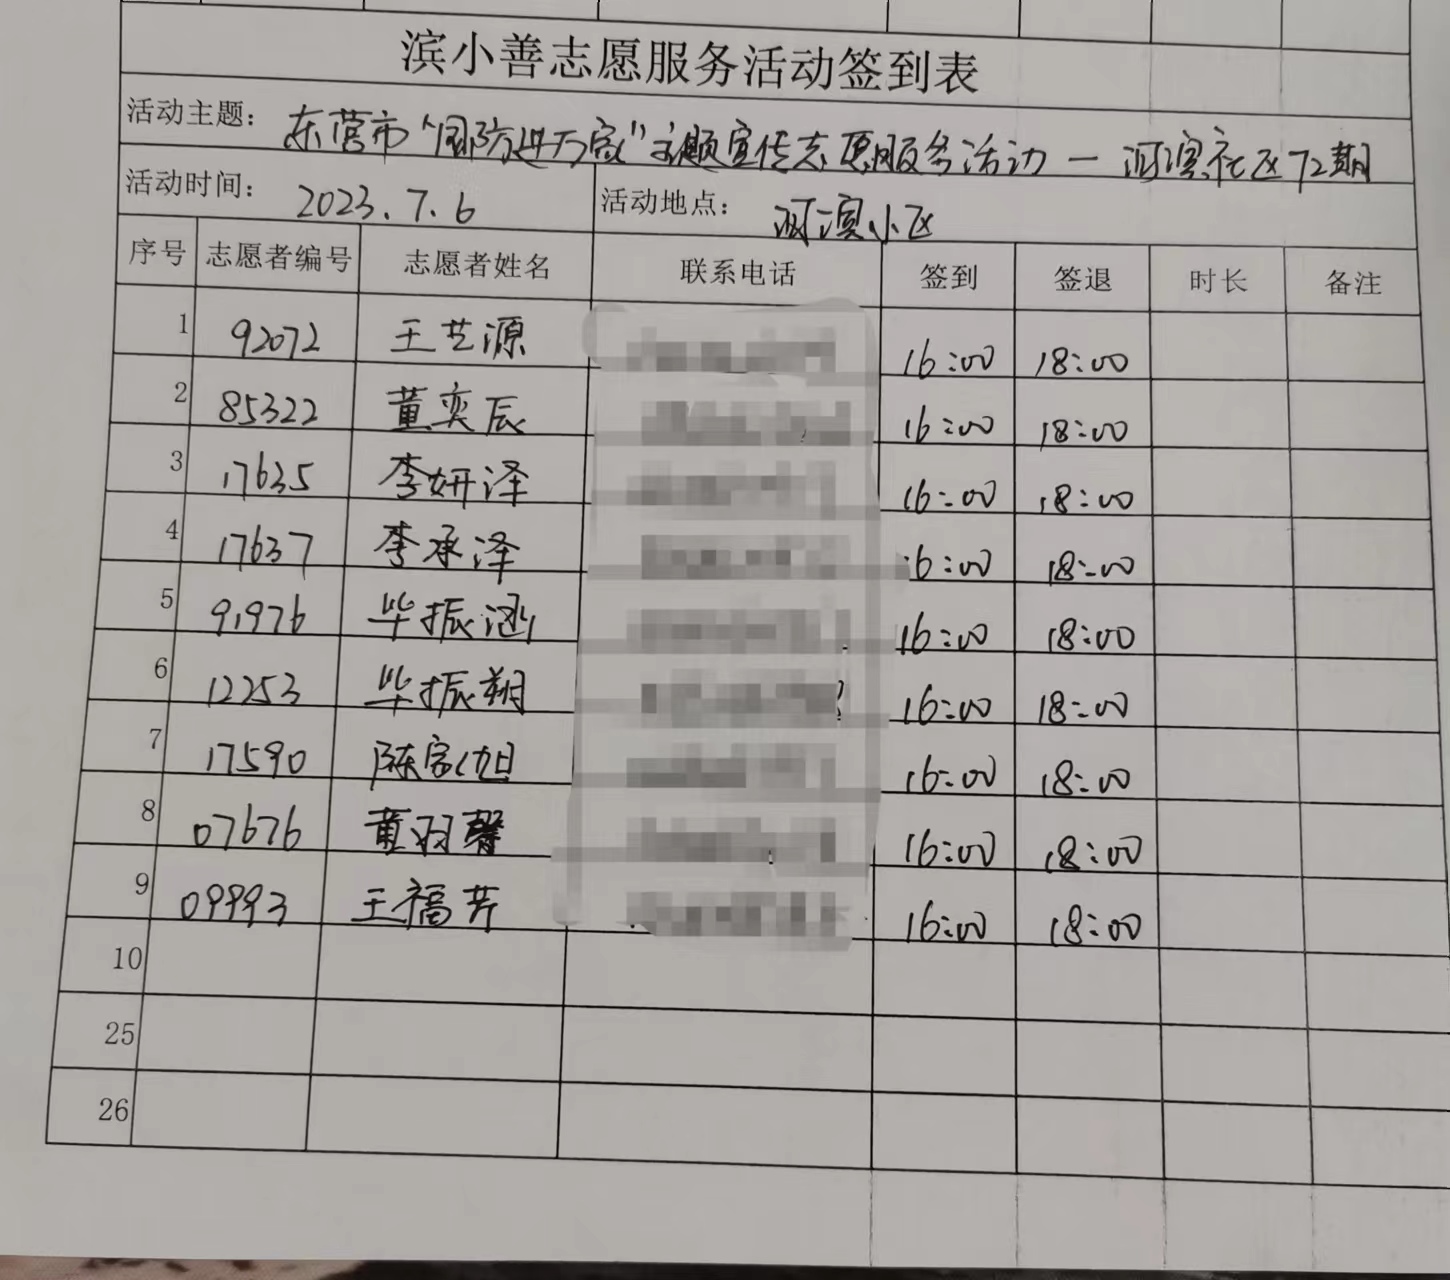 滨小善志愿服务活动签到表
活动主题: 东营市"国防进万家"主题宣传志愿服务活动—河滨社区72期
活动时间: 2023.7.6 活动地点: 河滨小区
序号 志愿者编号 志愿者姓名 联系电话 签到 签退 时长 备注
1 92072 王艺源 16:00 18:00
2 85322 董奕辰 16:00 18:00
3 17635 李妍泽 16:00 18:00
4 17637 李承泽 16:00 18:00
5 91976 毕振涵 16:00 18:00
6 12253 毕振翔 16:00 18:00
7 17590 陈家旭 16:00 18:00
8 07676 黄羽馨 16:00 18:00
9 09993 王福芹 16:00 18:00
10
25
26